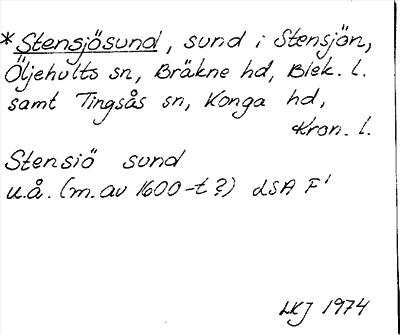 *Stensjösund, sund i Stensjön,
Öljehults sn, Bräkne hd, Blek. l.
samt Tingsås sn, Konga hd,
Kron. l.
Stensiö sund
u.å. (m. av 1600-t ?) LSA F1
LKJ 1974